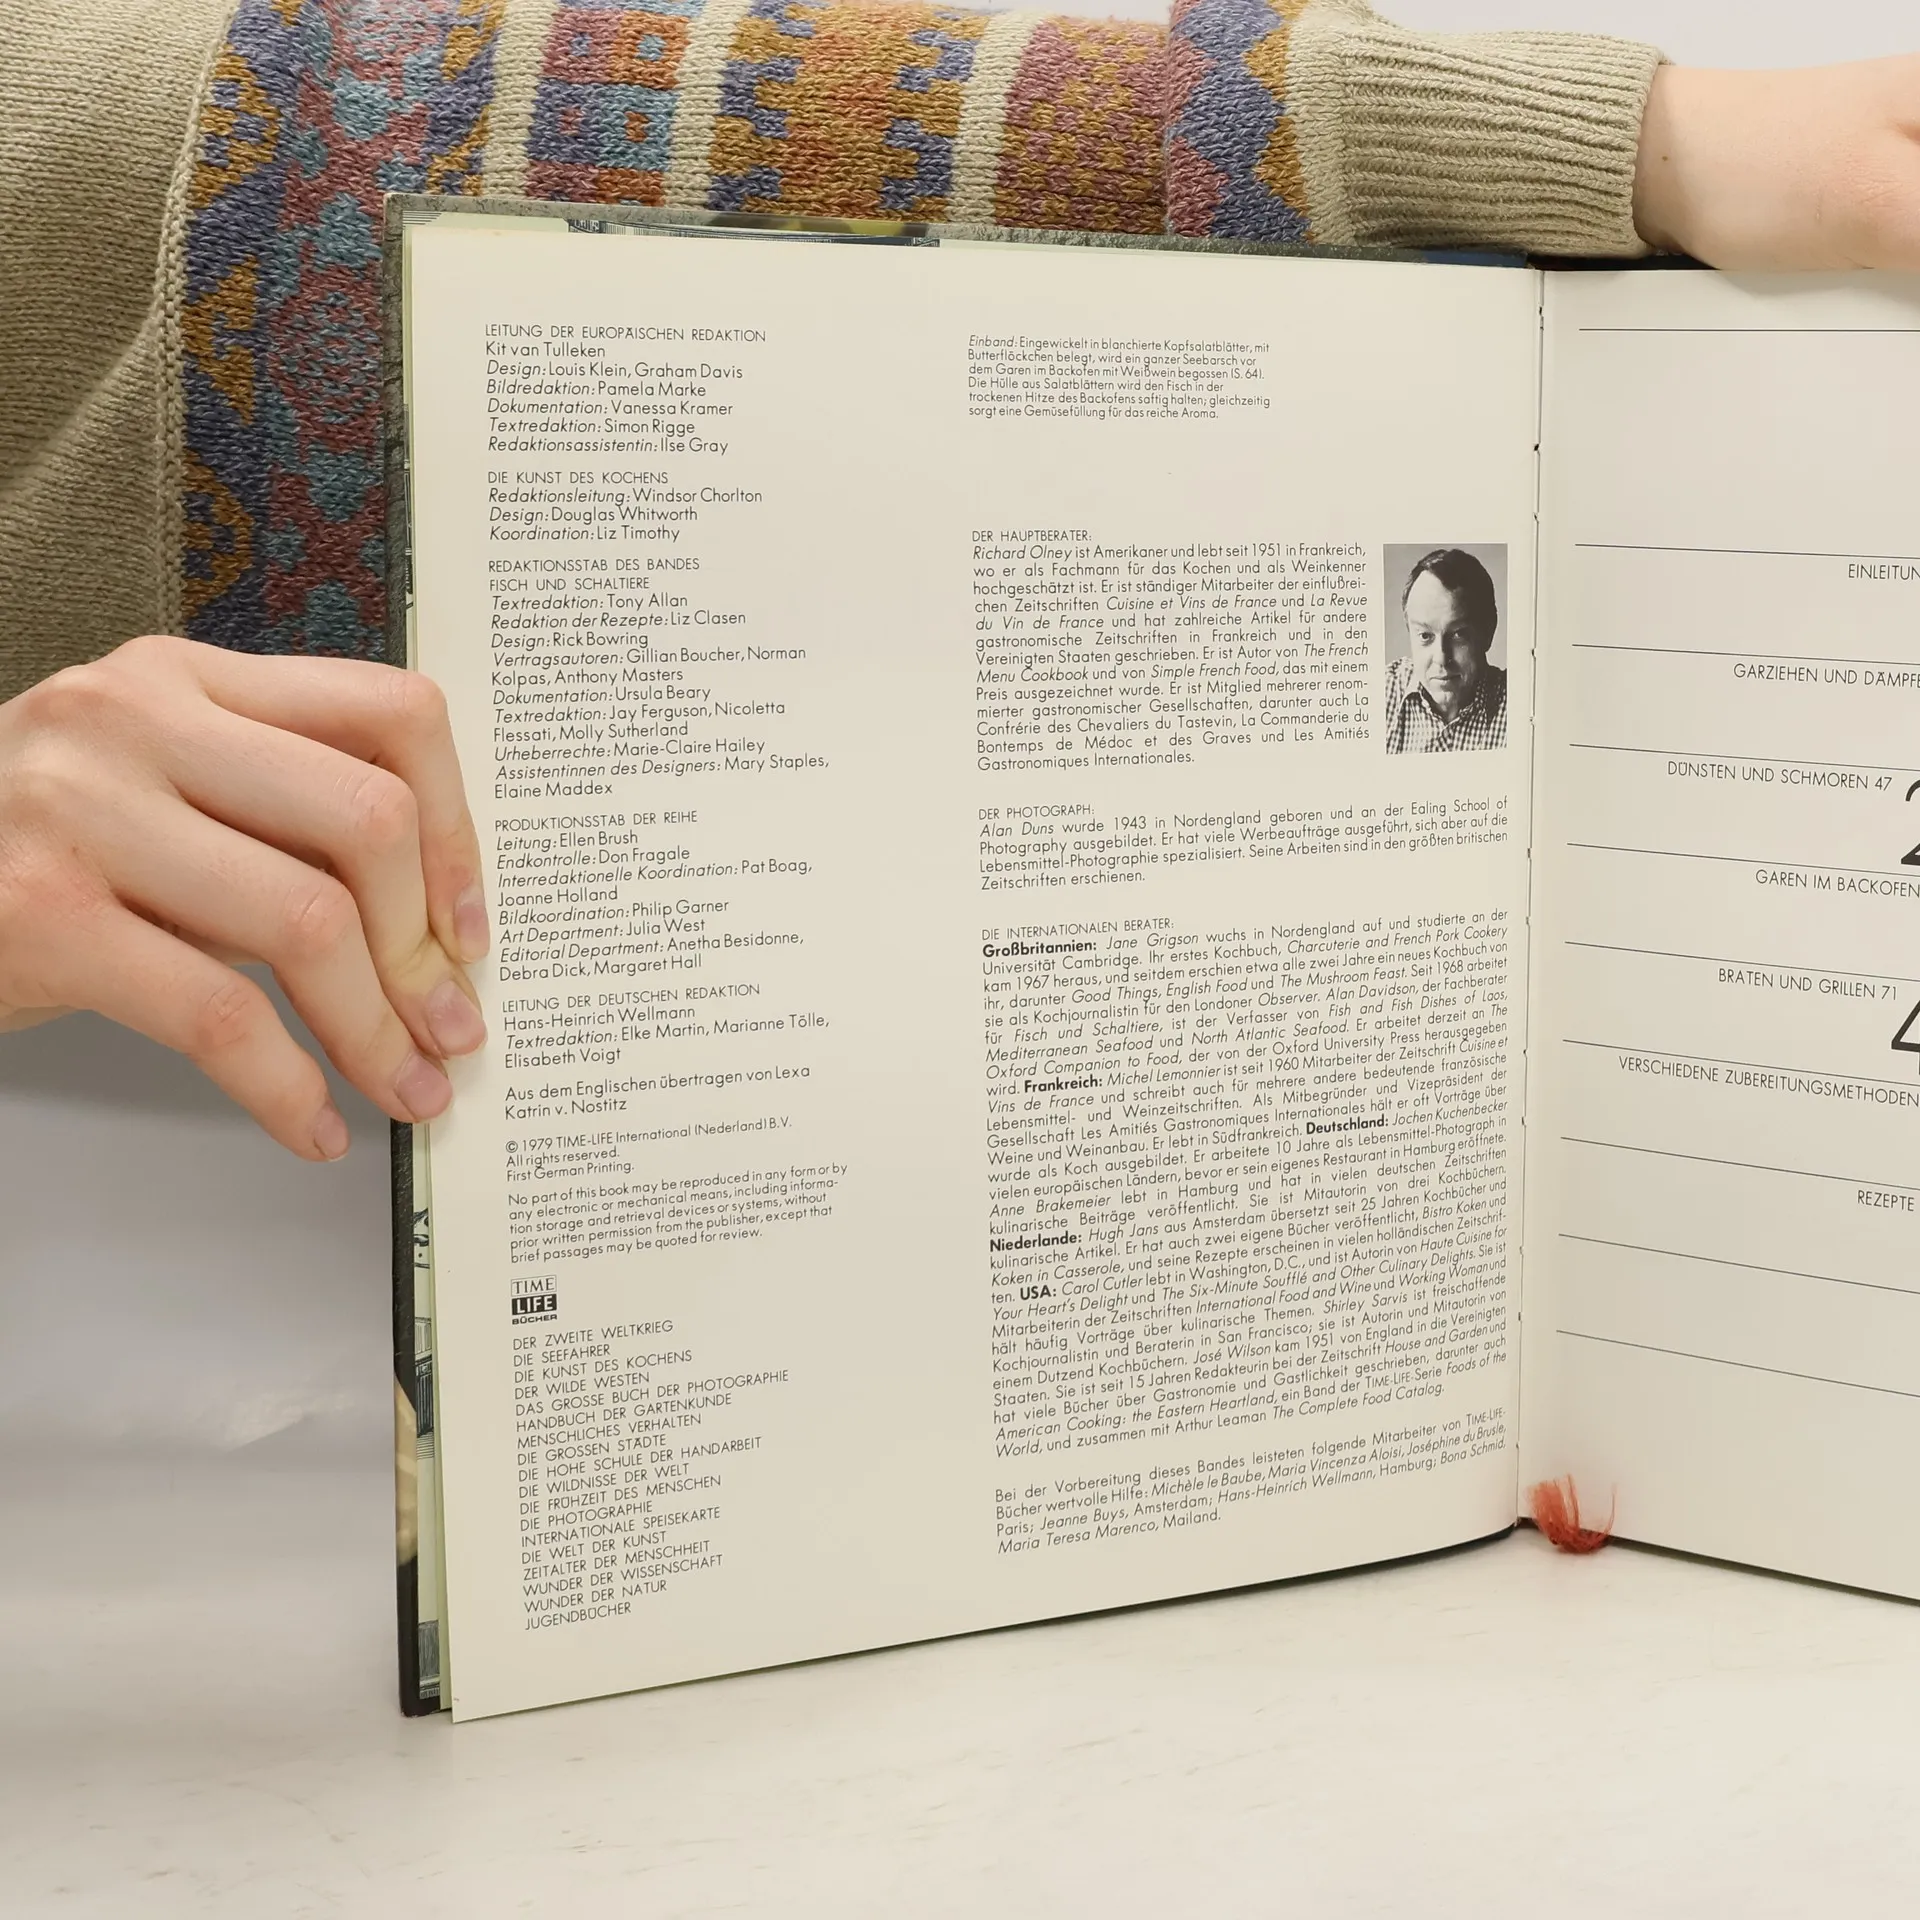 LEITUNG DER EUROPÄISCHEN REDAKTION
Kit van Tulleken
Design: Louis Klein, Graham Davis
Bildredaktion: Pamela Marke
Dokumentation: Vanessa Kramer
Textredaktion: Simon Rigge
Redaktionsassistentin: Ilse Gray
DIE KUNST DES KOCHENS
Redaktionsleitung: Windsor Chorlton
Design: Douglas Whitworth
Koordination: Liz Timothy
REDAKTIONSSTAB DES BANDES
FISCH UND SCHALTIERE
Textredaktion: Tony Allan
Redaktion der Rezepte: Liz Clasen
Design: Rick Bowring
Vertragsautoren: Gillian Boucher, Norman
Kolpas, Anthony Masters
Dokumentation: Ursula Beary
Textredaktion: Jay Ferguson, Nicoletta
Flessati, Molly Sutherland
Urheberrechte: Marie-Claire Hailey
Assistentinnen des Designers: Mary Staples,
Elaine Maddex
PRODUKTIONSSTAB DER REIHE
Leitung: Ellen Brush
Endkontrolle: Don Fragale
Interredaktionelle Koordination: Pat Boag,
Joanne Holland
Bildkoordination: Philip Garner
Art Department: Julia West
Editorial Department: Anetha Besidonne,
Debra Dick, Margaret Hall
LEITUNG DER DEUTSCHEN REDAKTION
Hans-Heinrich Wellmann
Textredaktion: Elke Martin, Marianne Tölle,
Elisabeth Voigt
Aus dem Englischen übertragen von Lexa
Katrin v. Nostitz
© 1979 TIME-LIFE International (Nederland) B.V.
All rights reserved.
First German Printing.
No part of this book may be reproduced in any form or by
any electronic or mechanical means, including informa-
tion storage and retrieval devices or systems, without
prior written permission from the publisher, except that
brief passages may be quoted for review.
TIME
LIFE
BÜCHER
DER ZWEITE WELTKRIEG
DIE SEEFAHRER
DIE KUNST DES KOCHENS
DER WILDE WESTEN
DAS GROSSE BUCH DER PHOTOGRAPHIE
HANDBUCH DER GARTENKUNDE
MENSCHLICHES VERHALTEN
DIE GROSSEN STÄDTE
DIE HOHE SCHULE DER HANDARBEIT
DIE WILDNISSE DER WELT
DIE FRÜHZEIT DES MENSCHEN
DIE PHOTOGRAPHIE
INTERNATIONALE SPEISEKARTE
DIE WELT DER KUNST
ZEITALTER DER MENSCHHEIT
WUNDER DER WISSENSCHAFT
WUNDER DER NATUR
JUGENDBÜCHER
Einband: Eingewickelt in blanchierte Kopfsalatblätter, mit
Butterflöckchen belegt, wird ein ganzer Seebarsch vor
dem Garen im Backofen mit Weißwein begossen (S. 64).
Die Hülle aus Salatblättern wird den Fisch in der
trockenen Hitze des Backofens saftig halten; gleichzeitig
sorgt eine Gemüsefüllung für das reiche Aroma.
DER HAUPTBERATER:
Richard Olney ist Amerikaner und lebt seit 1951 in Frankreich,
wo er als Fachmann für das Kochen und als Weinkenner
hochgeschätzt ist. Er ist ständiger Mitarbeiter der einflußrei-
chen Zeitschriften Cuisine et Vins de France und La Revue
du Vin de France und hat zahlreiche Artikel für andere
gastronomische Zeitschriften in Frankreich und in den
Vereinigten Staaten geschrieben. Er ist Autor von The French
Menu Cookbook und von Simple French Food, das mit einem
Preis ausgezeichnet wurde. Er ist Mitglied mehrerer renom-
mierter gastronomischer Gesellschaften, darunter auch La
Confrérie des Chevaliers du Tastevin, La Commanderie du
Bontemps de Médoc et des Graves und Les Amitiés
Gastronomiques Internationales.
DER PHOTOGRAPH:
Alan Duns wurde 1943 in Nordengland geboren und an der Ealing School of
Photography ausgebildet. Er hat viele Werbeaufträge ausgeführt, sich aber auf die
Lebensmittel-Photographie spezialisiert. Seine Arbeiten sind in den größten britischen
Zeitschriften erschienen.
DIE INTERNATIONALEN BERATER:
Großbritannien: Jane Grigson wuchs in Nordengland auf und studierte an der
Universität Cambridge. Ihr erstes Kochbuch, Charcuterie and French Pork Cookery
kam 1967 heraus, und seitdem erschien etwa alle zwei Jahre ein neues Kochbuch von
ihr, darunter Good Things, English Food und The Mushroom Feast. Seit 1968 arbeitet
sie als Kochjournalistin für den Londoner Observer. Alan Davidson, der Fachberater
für Fisch und Schaltiere, ist der Verfasser von Fish and Fish Dishes of Laos,
Mediterranean Seafood und North Atlantic Seafood. Er arbeitet derzeit an The
Oxford Companion to Food, der von der Oxford University Press herausgegeben
wird. Frankreich: Michel Lemonnier ist seit 1960 Mitarbeiter der Zeitschrift Cuisine et
Vins de France und schreibt auch für mehrere andere bedeutende französische
Lebensmittel- und Weinzeitschriften. Als Mitbegründer und Vizepräsident der
Gesellschaft Les Amitiés Gastronomiques Internationales hält er oft Vorträge über
Weine und Weinanbau. Er lebt in Südfrankreich. Deutschland: Jochen Kuchenbecker
wurde als Koch ausgebildet. Er arbeitete 10 Jahre als Lebensmittel-Photograph in
vielen europäischen Ländern, bevor er sein eigenes Restaurant in Hamburg eröffnete.
Anne Brakemeier lebt in Hamburg und hat in vielen deutschen Zeitschriften
kulinarische Beiträge veröffentlicht. Sie ist Mitautorin von drei Kochbüchern.
Niederlande: Hugh Jans aus Amsterdam übersetzt seit 25 Jahren Kochbücher und
kulinarische Artikel. Er hat auch zwei eigene Bücher veröffentlicht, Bistro Koken und
Koken in Casserole, und seine Rezepte erscheinen in vielen holländischen Zeitschrif-
ten. USA: Carol Cutler lebt in Washington, D.C., und ist Autorin von Haute Cuisine for
Your Heart's Delight und The Six-Minute Soufflé and Other Culinary Delights. Sie ist
Mitarbeiterin der Zeitschriften International Food and Wine und Working Woman und
hält häufig Vorträge über kulinarische Themen. Shirley Sarvis ist freischaffende
Kochjournalistin und Beraterin in San Francisco; sie ist Autorin und Mitautorin von
einem Dutzend Kochbüchern. José Wilson kam 1951 von England in die Vereinigten
Staaten. Sie ist seit 15 Jahren Redakteurin bei der Zeitschrift House and Garden und
hat viele Bücher über Gastronomie und Gastlichkeit geschrieben, darunter auch
American Cooking: the Eastern Heartland, ein Band der TIME-LIFE-Serie Foods of the
World, und zusammen mit Arthur Leaman The Complete Food Catalog.
Bei der Vorbereitung dieses Bandes leisteten folgende Mitarbeiter von TIME-LIFE-
Bücher wertvolle Hilfe: Michèle le Baube, Maria Vincenza Aloisi, Joséphine du Brusle,
Paris; Jeanne Buys, Amsterdam; Hans-Heinrich Wellmann, Hamburg; Bona Schmid,
Maria Teresa Marenco, Mailand.
EINLEITUN
GARZIEHEN UND DÄMPFE
DÜNSTEN UND SCHMOREN 47
2
GAREN IM BACKOFEN
BRATEN UND GRILLEN 71
4
VERSCHIEDENE ZUBEREITUNGSMETHODEN
REZEPTE